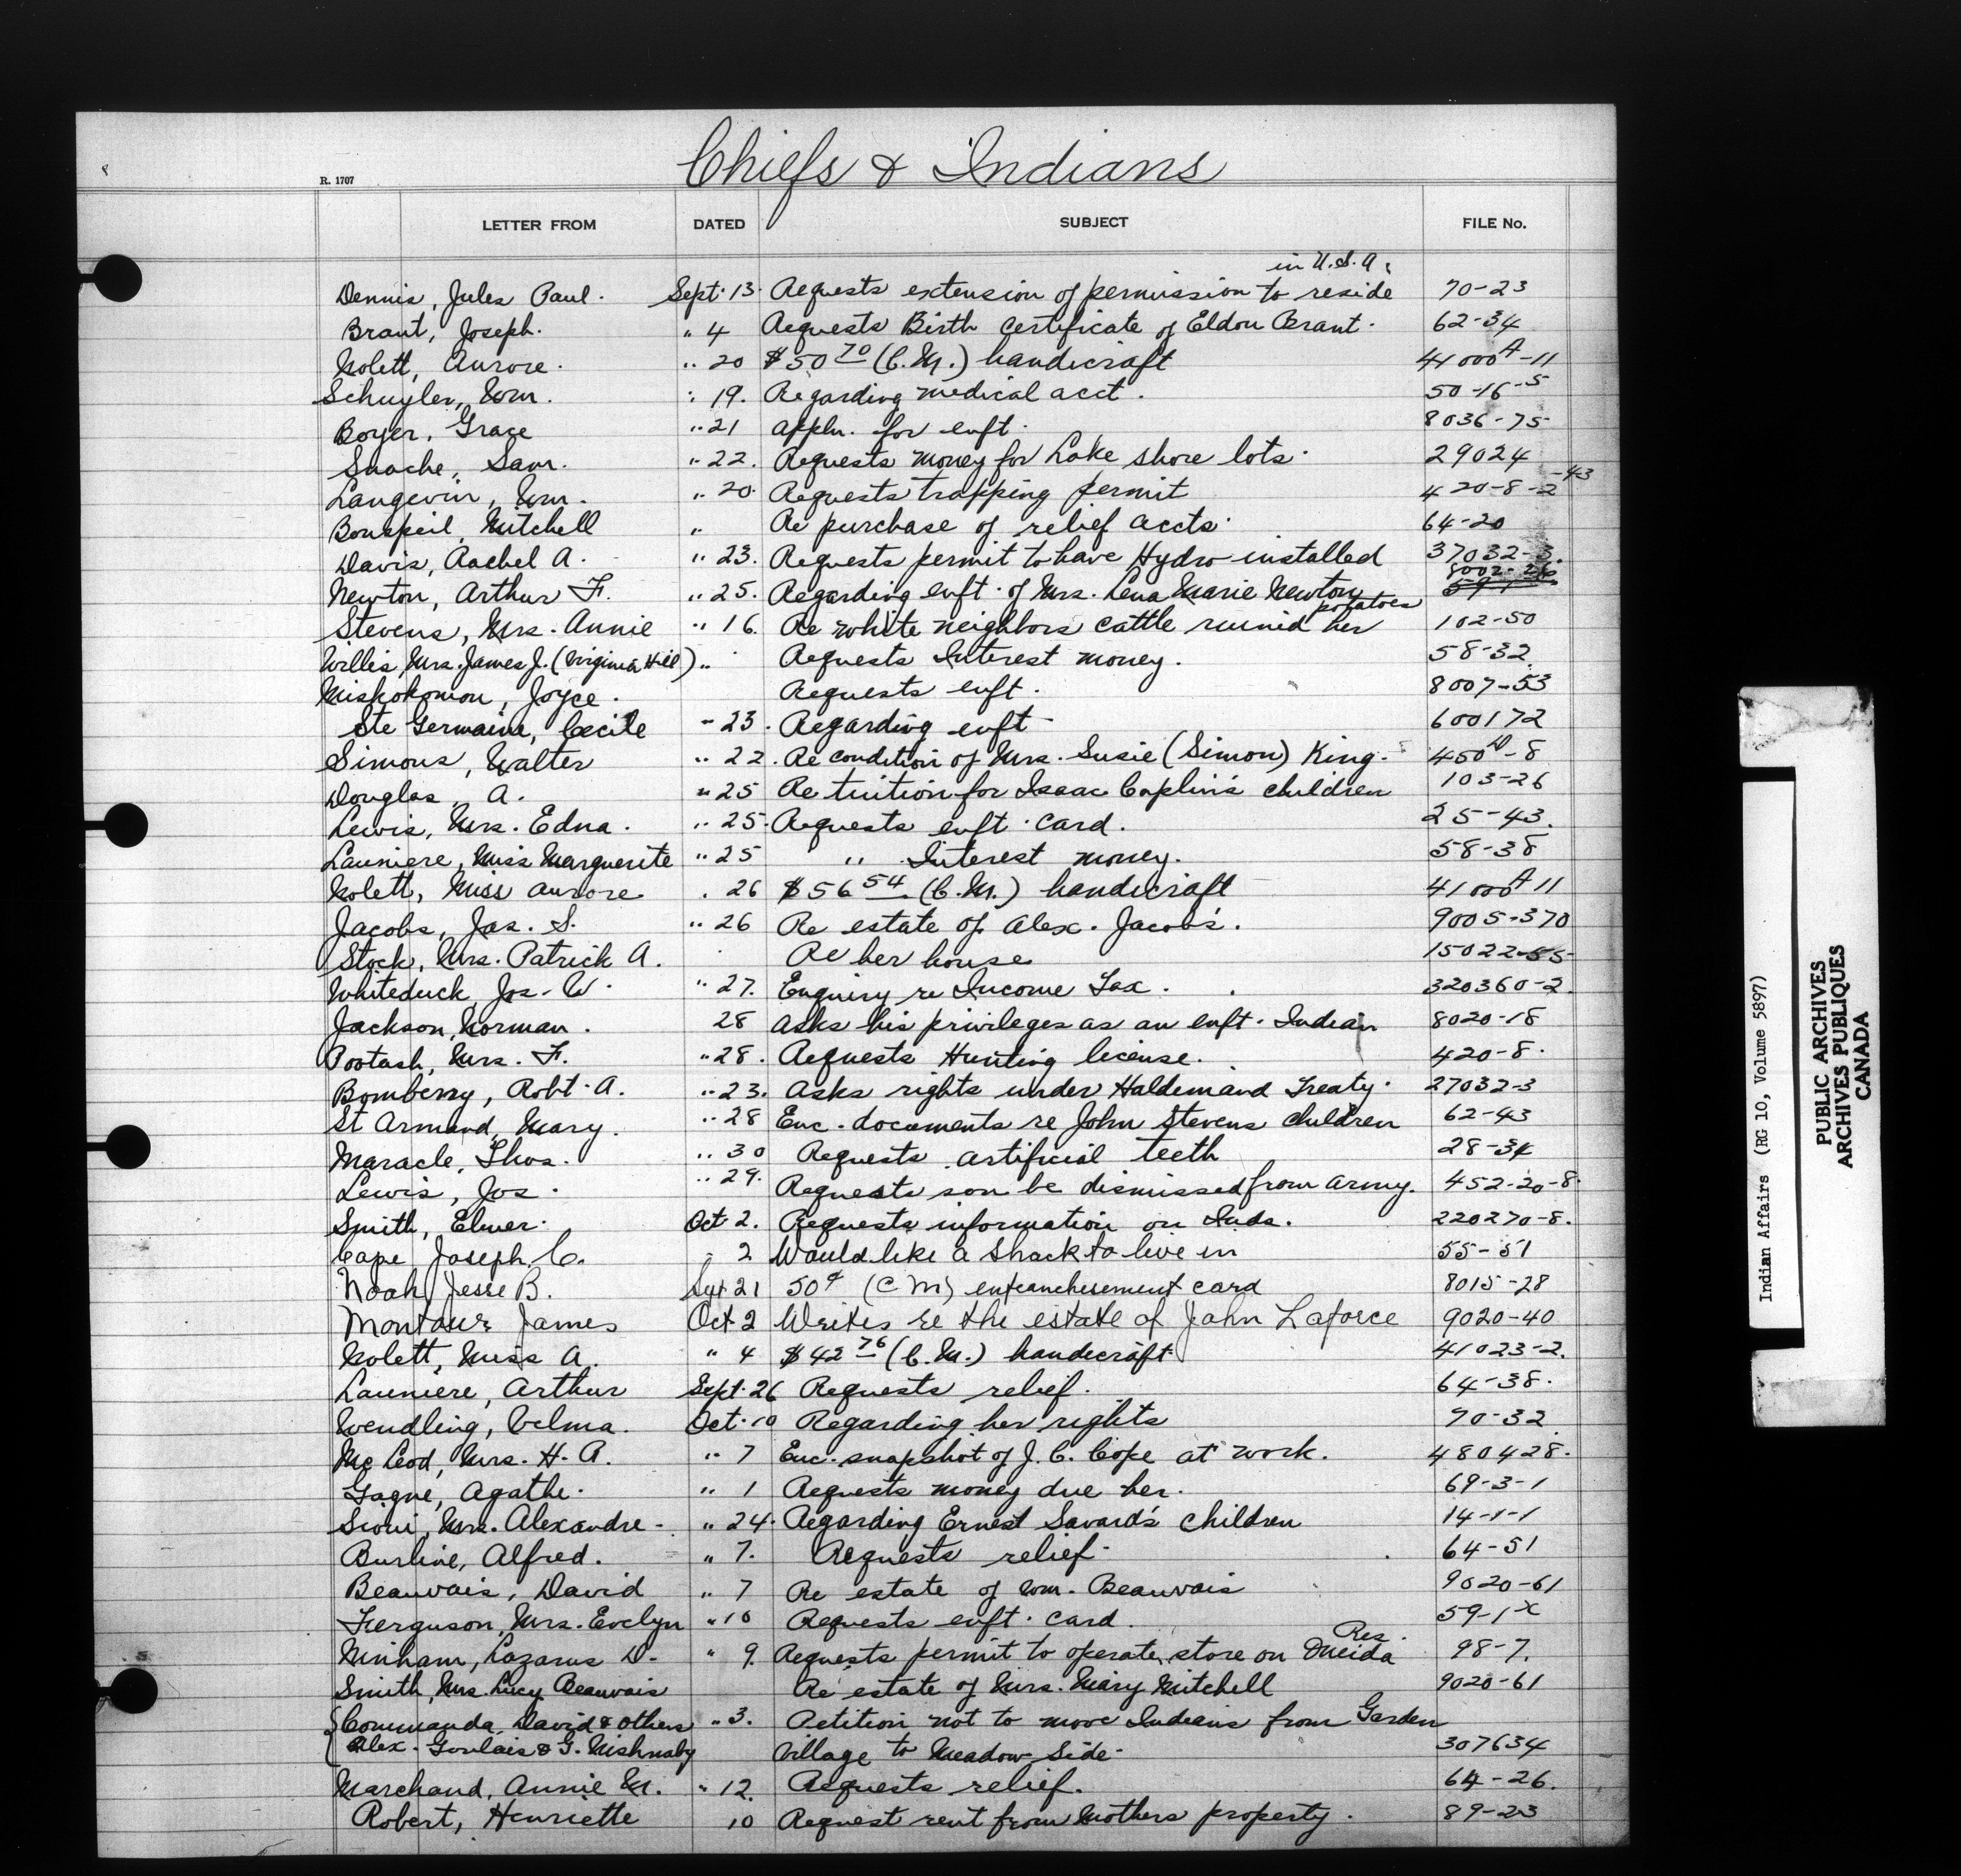 Chiefs & Indians
R. 1707
LETTER FROM DATED SUBJECT FILE No.
in U.S.A.
Dennis, Jules Paul. Sept. 13. Requests extension of permission to reside 70-23
Brant, Joseph. " 4 Requests Birth Certificate of Eldon Brant. 62-34
Nolett, Aurore. " 20 $50 70 (C.M.) handicraft 41000A-11
Schuyler, Wm. " 19. Regarding medical acct. 50-16-5
Boyer, Grace " 21 Appln. for enft. 8036-75
Snache, Sam. " 22. Requests money for Lake shore lots. 29024
Langevin, Wm. " 20. Requests trapping permit 420-8-2-43
Bonspeil, Mitchell " Re purchase of relief accts. 64-20
Davis, Rachel A. " 23. Requests permit to have Hydro installed 37032-3.
8002-26
Newton, Arthur F. " 25. Regarding enft. of Mrs. Lena Marie Newton 59-1
potatoes
Stevens, Mrs. Annie " 16. Re white neighbors cattle ruined her 102-50
Willis Mrs. James J. (Virginia Hill) " Requests Interest money. 58-32
Miskokomon, Joyce. Requests enft. 8007-53
Ste Germaine, Cecile " 23. Regarding enft 600172
Simons, Walter " 22. Re condition of Mrs. Susie (Simon) King. 450-8
Douglas, A. " 25 Re tuition for Isaac Caplin's children 103-26
Lewis, Mrs. Edna. " 25. Requests enft. card. 25-43.
Launiere, Miss Marguerite " 25 " Interest money. 58-38
Nolett, Miss Aurore . 26 $56 54 (C.M.) handicraft 41000A 11
Jacobs, Jas. S. " 26 Re estate of Alex. Jacobs. 9005-370
Stock, Mrs. Patrick A. Re her house 15022-55
Whiteduck, Jos. W. " 27. Enquiry re Income Tax. 320360-2.
Jackson, Norman. 28 Asks his privileges as an enft. Indian 8020-18
Pootash, Mrs. F. " 28. Requests Hunting license. 420-8.
Bomberry, Robt. A. " 23. Asks rights under Haldimand Treaty. 27032-3
St Armand, Mary. " 28 Enc. documents re John Stevens children 62-43
Maracle, Thos. " 30 Requests artificial teeth 28-34
Lewis, Jos. " 29. Requests son be dismissed from army. 452-20-8.
Smith, Elmer. Oct. 2. Requests information on Inds. 220270-8.
Cape Joseph C. " 2 Would like a shack to live in 55-51
Noah Jesse B. Sept 21 50¢ (C M) enfranchisement card 8015-28
Montour James Oct 2 Writes re the estate of John Laforce 9020-40
Nolett, Miss A. " 4 $42 76 (C.M.) handicraft 41023-2.
Launiere, Arthur Sept. 26 Requests relief. 64-38.
Wendling, Velma. Oct. 10 Regarding her rights 70-32
McLeod, Mrs. H. A. " 7 Enc. snapshot of J. C. Cope at work. 480428.
Gagne, Agathe. " 1 Requests money due her. 69-3-1
Sioui, Mrs. Alexandre. " 24. Regarding Ernest Savard's children 14-1-1
Burline, Alfred. " 7. Requests relief. 64-51
Beauvais, David " 7 Re estate of Wm. Beauvais 9020-61
Ferguson, Mrs. Evelyn " 10 Requests enft. card. 59-1 x
Res.
Ninham, Lazarus D. " 9. Requests permit to operate store on Oneida 98-7.
Smith, Mrs. Lucy Beauvais Re estate of Mrs. Mary Mitchell 9020-61
Commanda, David & others " 3. Petition not to move Indians from Garden
Alex. Goulais & G. Nishnaby Village to Meadow Side. 307634
Marchand, Annie M. " 12. Requests relief. 64-26.
Robert, Henriette 10 Request rent from Mothers property. 89-23
Indian Affairs (RG 10, Volume 5897)
PUBLIC ARCHIVES
ARCHIVES PUBLIQUES
CANADA